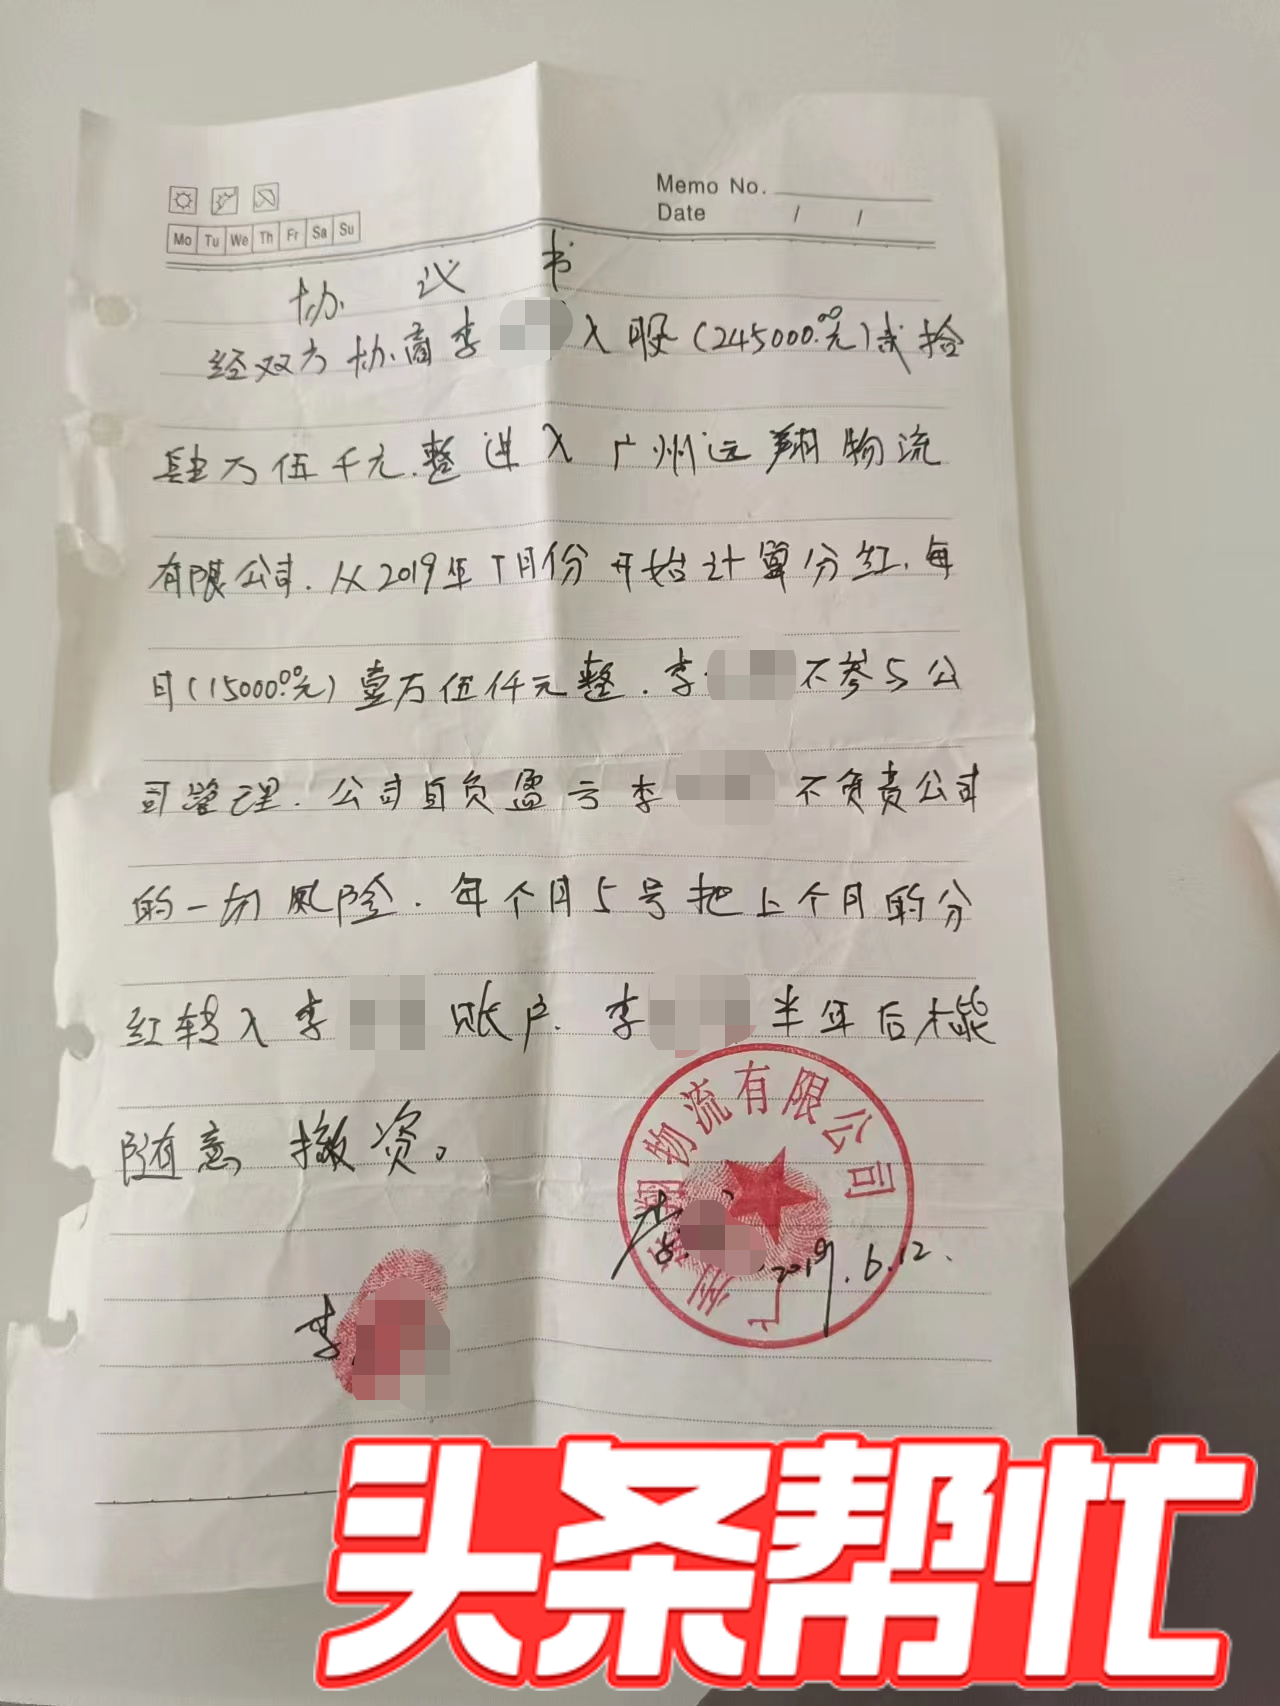 Memo No.
Date / /
Mo Tu We Th Fr Sa Su
协议书
经双方协商李 入股(245000.00元)贰拾
肆万伍千元.整进入广州远翔物流
有限公司.从2019年7月份开始计算分红.每
月(15000.00元)壹万伍仟元整.李 不参与公
司管理.公司自负盈亏李 不负责公司
的一切风险.每个月5号把上个月的分
红转入李 账户.李 半年后才能
随意撤资。
翔物流有限公司
李
2019.6.12.
李
头条帮忙